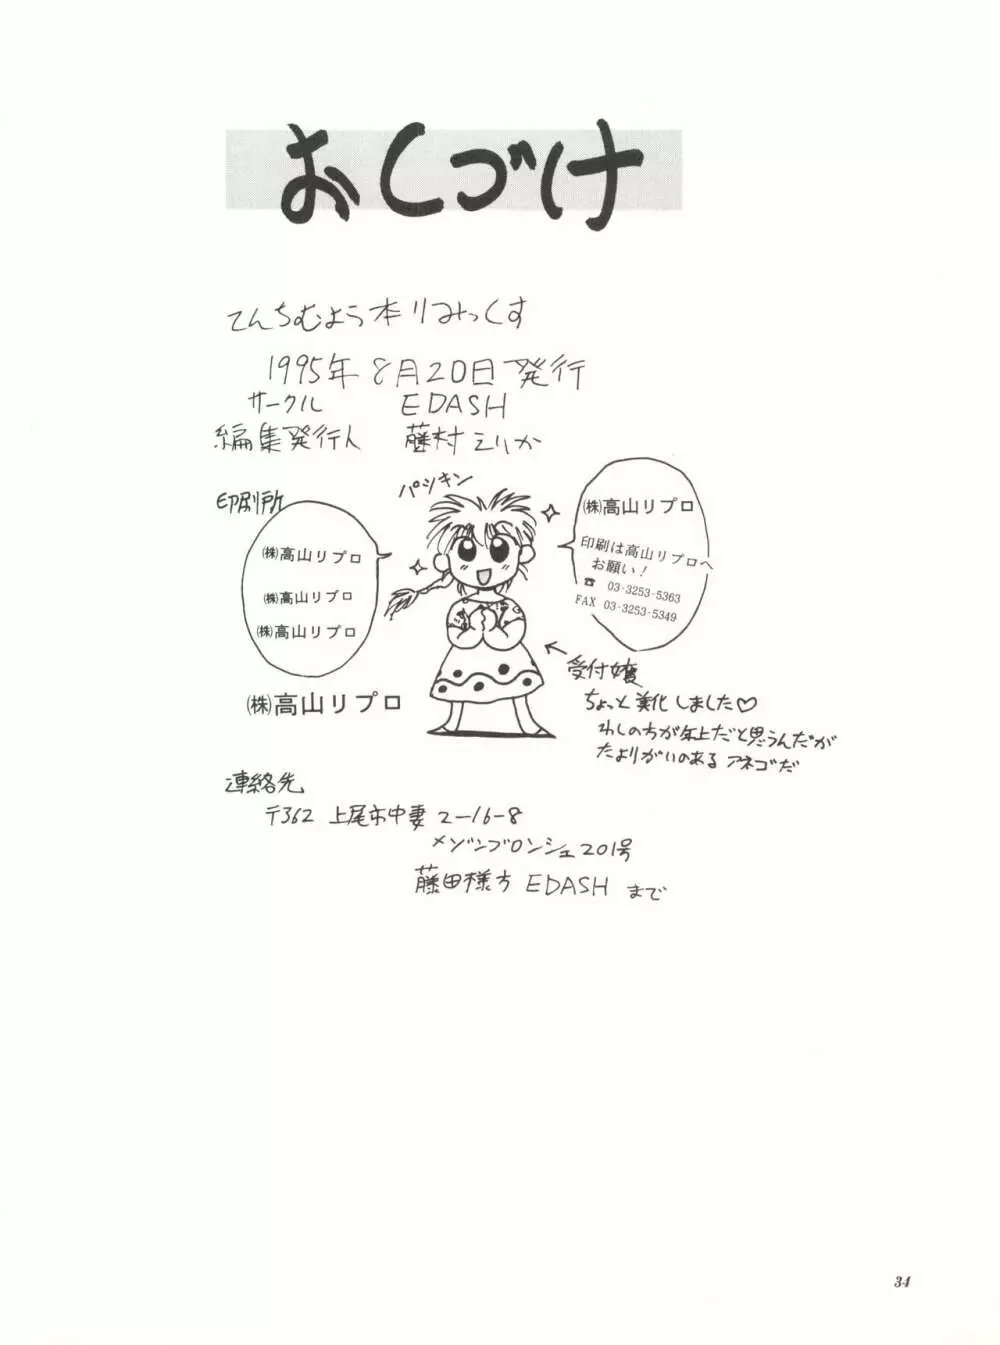 おくづけ
てんちむよう本りみっくす
1995年8月20日発行
サークル EDASH
編集発行人 藤村えりか
印刷所
パツキン
㈱高山リプロ
㈱高山リプロ
㈱高山リプロ
㈱高山リプロ
㈱高山リプロ
印刷は高山リプロへ
お願い!
☎ 03-3253-5363
FAX 03-3253-5349
←受付嬢
ちょっと美化しました♡
わしの方が年上だと思うんだが
たよりがいのあるアネゴだ
連絡先
〒362 上尾市中妻2-16-8
メゾンブロンシェ201号
藤田様方 EDASH まで
34